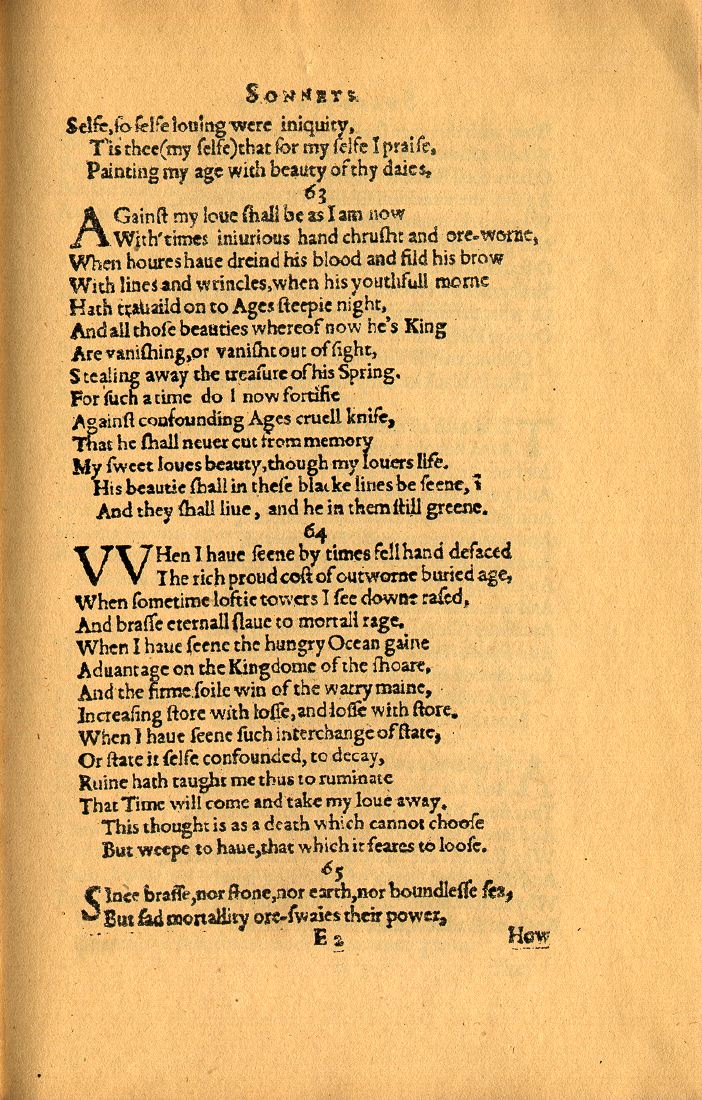 SONNETS.
Selfe,ſo ſelfe louing were iniquity,
T'is thee(my ſelfe)that for my ſelfe I praiſe,
Painting my age with beauty of thy daies,
63
AGainſt my loue ſhall be as I am now
With times iniurious hand chruſht and ore-worne,
When houres haue dreind his blood and fild his brow
With lines and wrincles,when his youthfull morne
Hath trauaild on to Ages ſteepie night,
And all thoſe beauties whereof now he's King
Are vaniſhing,or vaniſht out of ſight,
Stealing away the treaſure of his Spring.
For ſuch a time do I now fortifie
Againſt confounding Ages cruell knife,
That he ſhall neuer cut from memory
My ſweet loues beauty,though my louers life.
His beautie ſhall in theſe blacke lines be ſeene,
And they ſhall liue, and he in them ſtill greene.
64
VVHen I haue ſeene by times fell hand defaced
The rich proud coſt of outworne buried age,
When ſometime loftie towers I ſee downe raſed,
And braſſe eternall ſlaue to mortall rage.
When I haue ſeene the hungry Ocean gaine
Aduantage on the Kingdome of the ſhoare,
And the firme ſoile win of the watry maine,
Increaſing ſtore with loſſe,and loſſe with ſtore.
When I haue ſeene ſuch interchange of ſtate,
Or ſtate it ſelfe confounded, to decay,
Ruine hath taught me thus to ruminate
That Time will come and take my loue away.
This thought is as a death which cannot chooſe
But weepe to haue,that which it feares to looſe.
65
SInce braſſe,nor ſtone,nor earth,nor boundleſſe ſea,
But ſad mortallity ore-ſwaies their power,
E 2 How